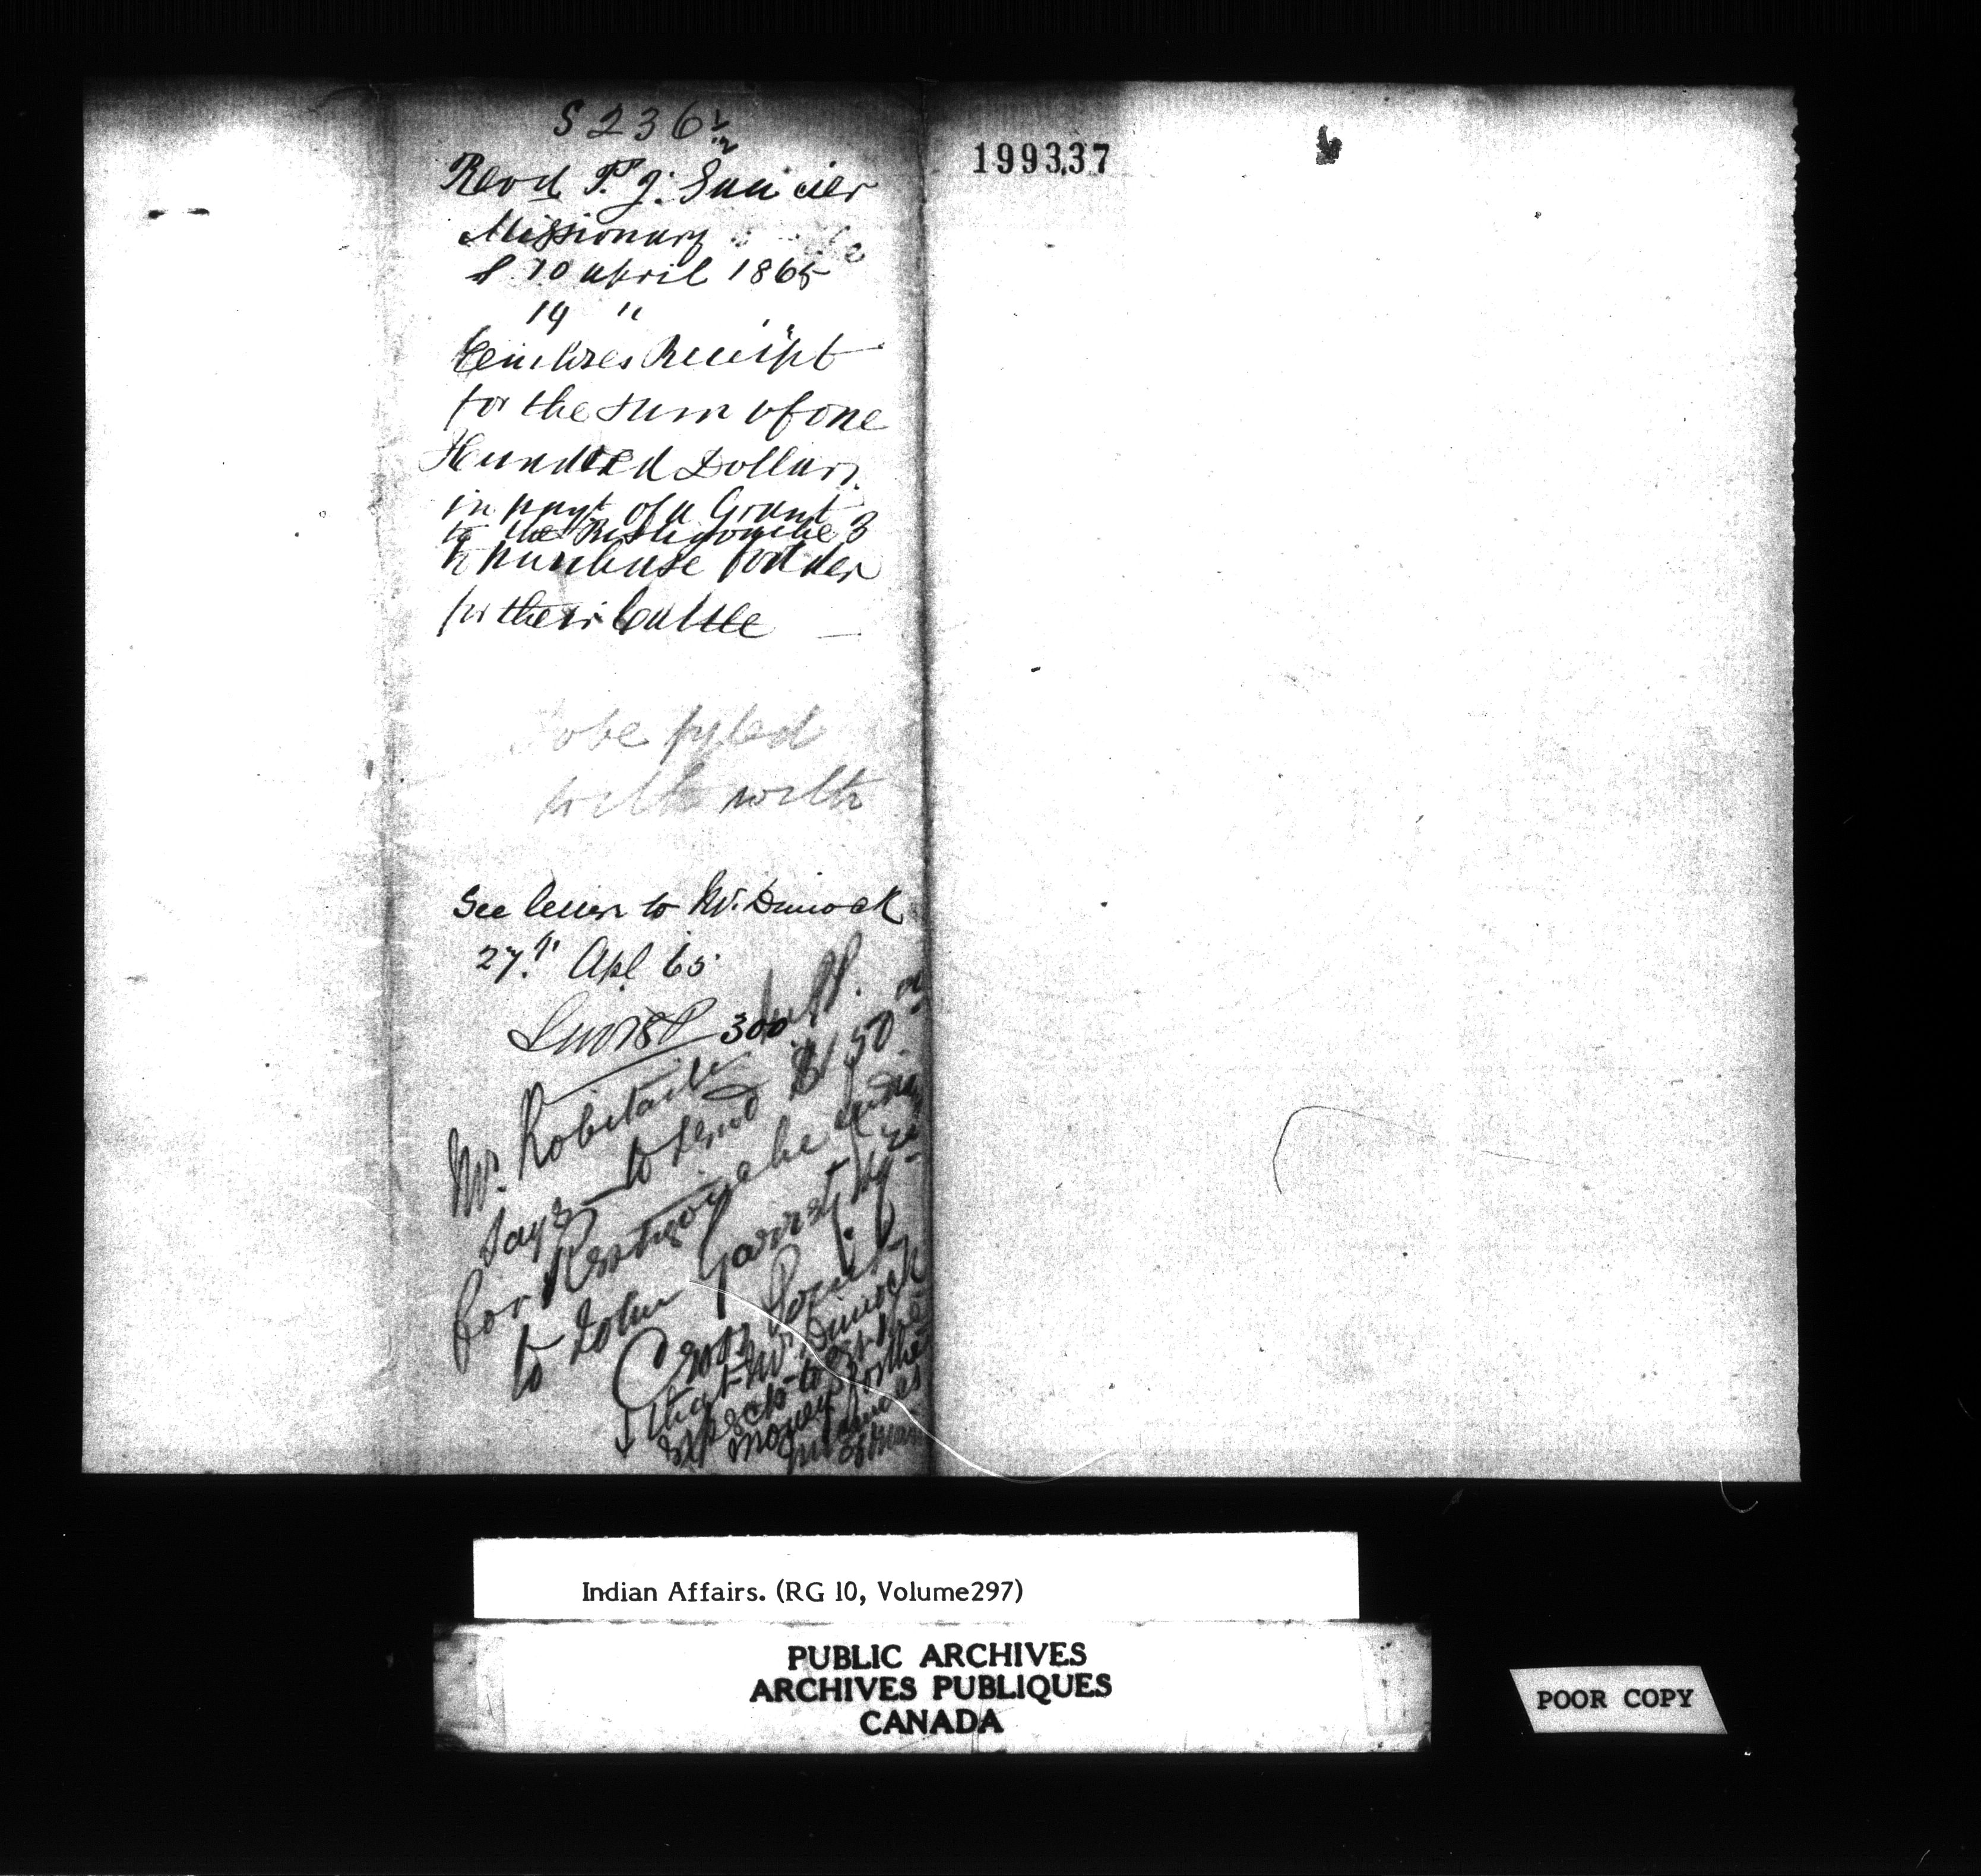 S 236½
Revd P. J. Saucier
Missionary
d. 10 April 1865
19 "
Encloses Receipt
for the sum of one
Hundred Dollars
in payt of a Grant
to the Restigouche
to purchase fodder
for their Cattle
To be fyled
with
See letter to Mr. Dimock
27th Apl 65
300
Mr. Robitaille
says to send $150
for Restigouche
to John
Cross Point
& that Mr Dimock
expects to get the
money for the
199337
Indian Affairs. (RG 10, Volume297)
PUBLIC ARCHIVES
ARCHIVES PUBLIQUES
CANADA
POOR COPY